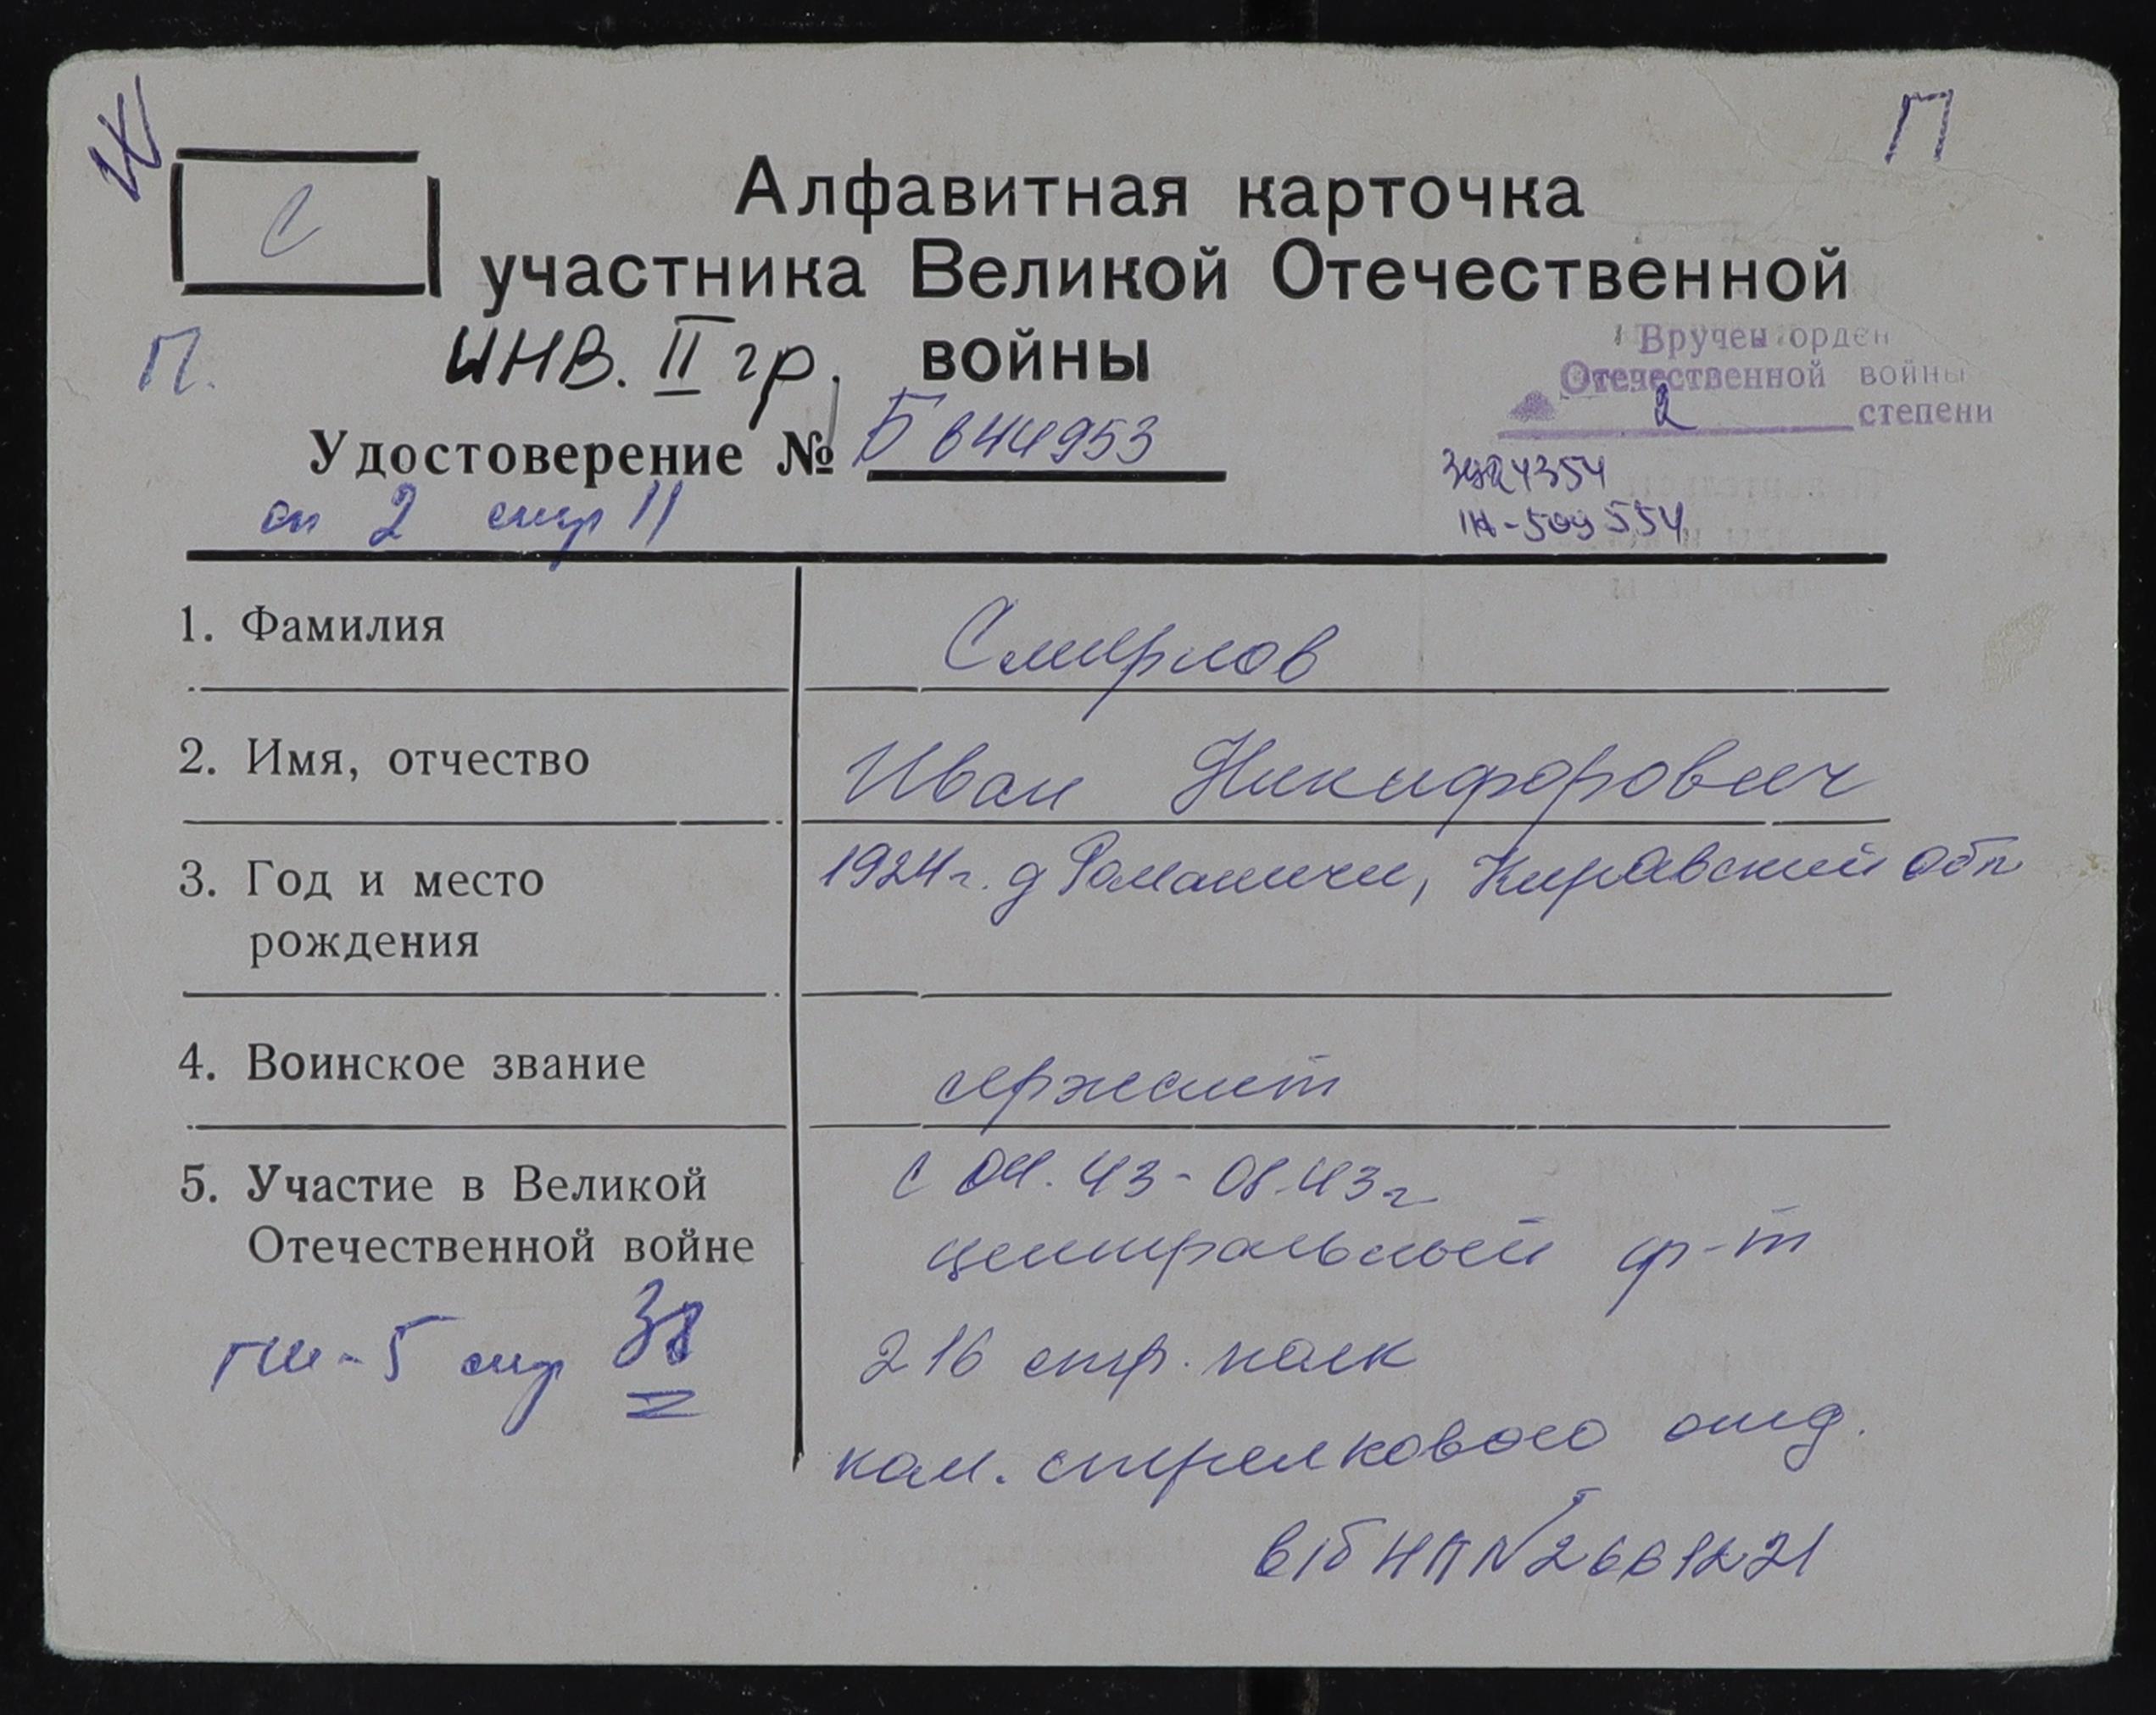 П
С
Алфавитная карточка
участника Великой Отечественной
П. инв. II гр. войны
Вручен орден
Отечественной войны
2 степени
Удостоверение № Б 644953
оп 2 стр 11
4354
509554
1. Фамилия Смирнов
2. Имя, отчество Иван Никифорович
3. Год и место рождения 1924 г. д Романичи, Кировский обл
4. Воинское звание сержант
5. Участие в Великой Отечественной войне с 04.43 - 08.43 г
центральный ф-т
216 стр. полк
ком. стрелкового отд.
стр 38